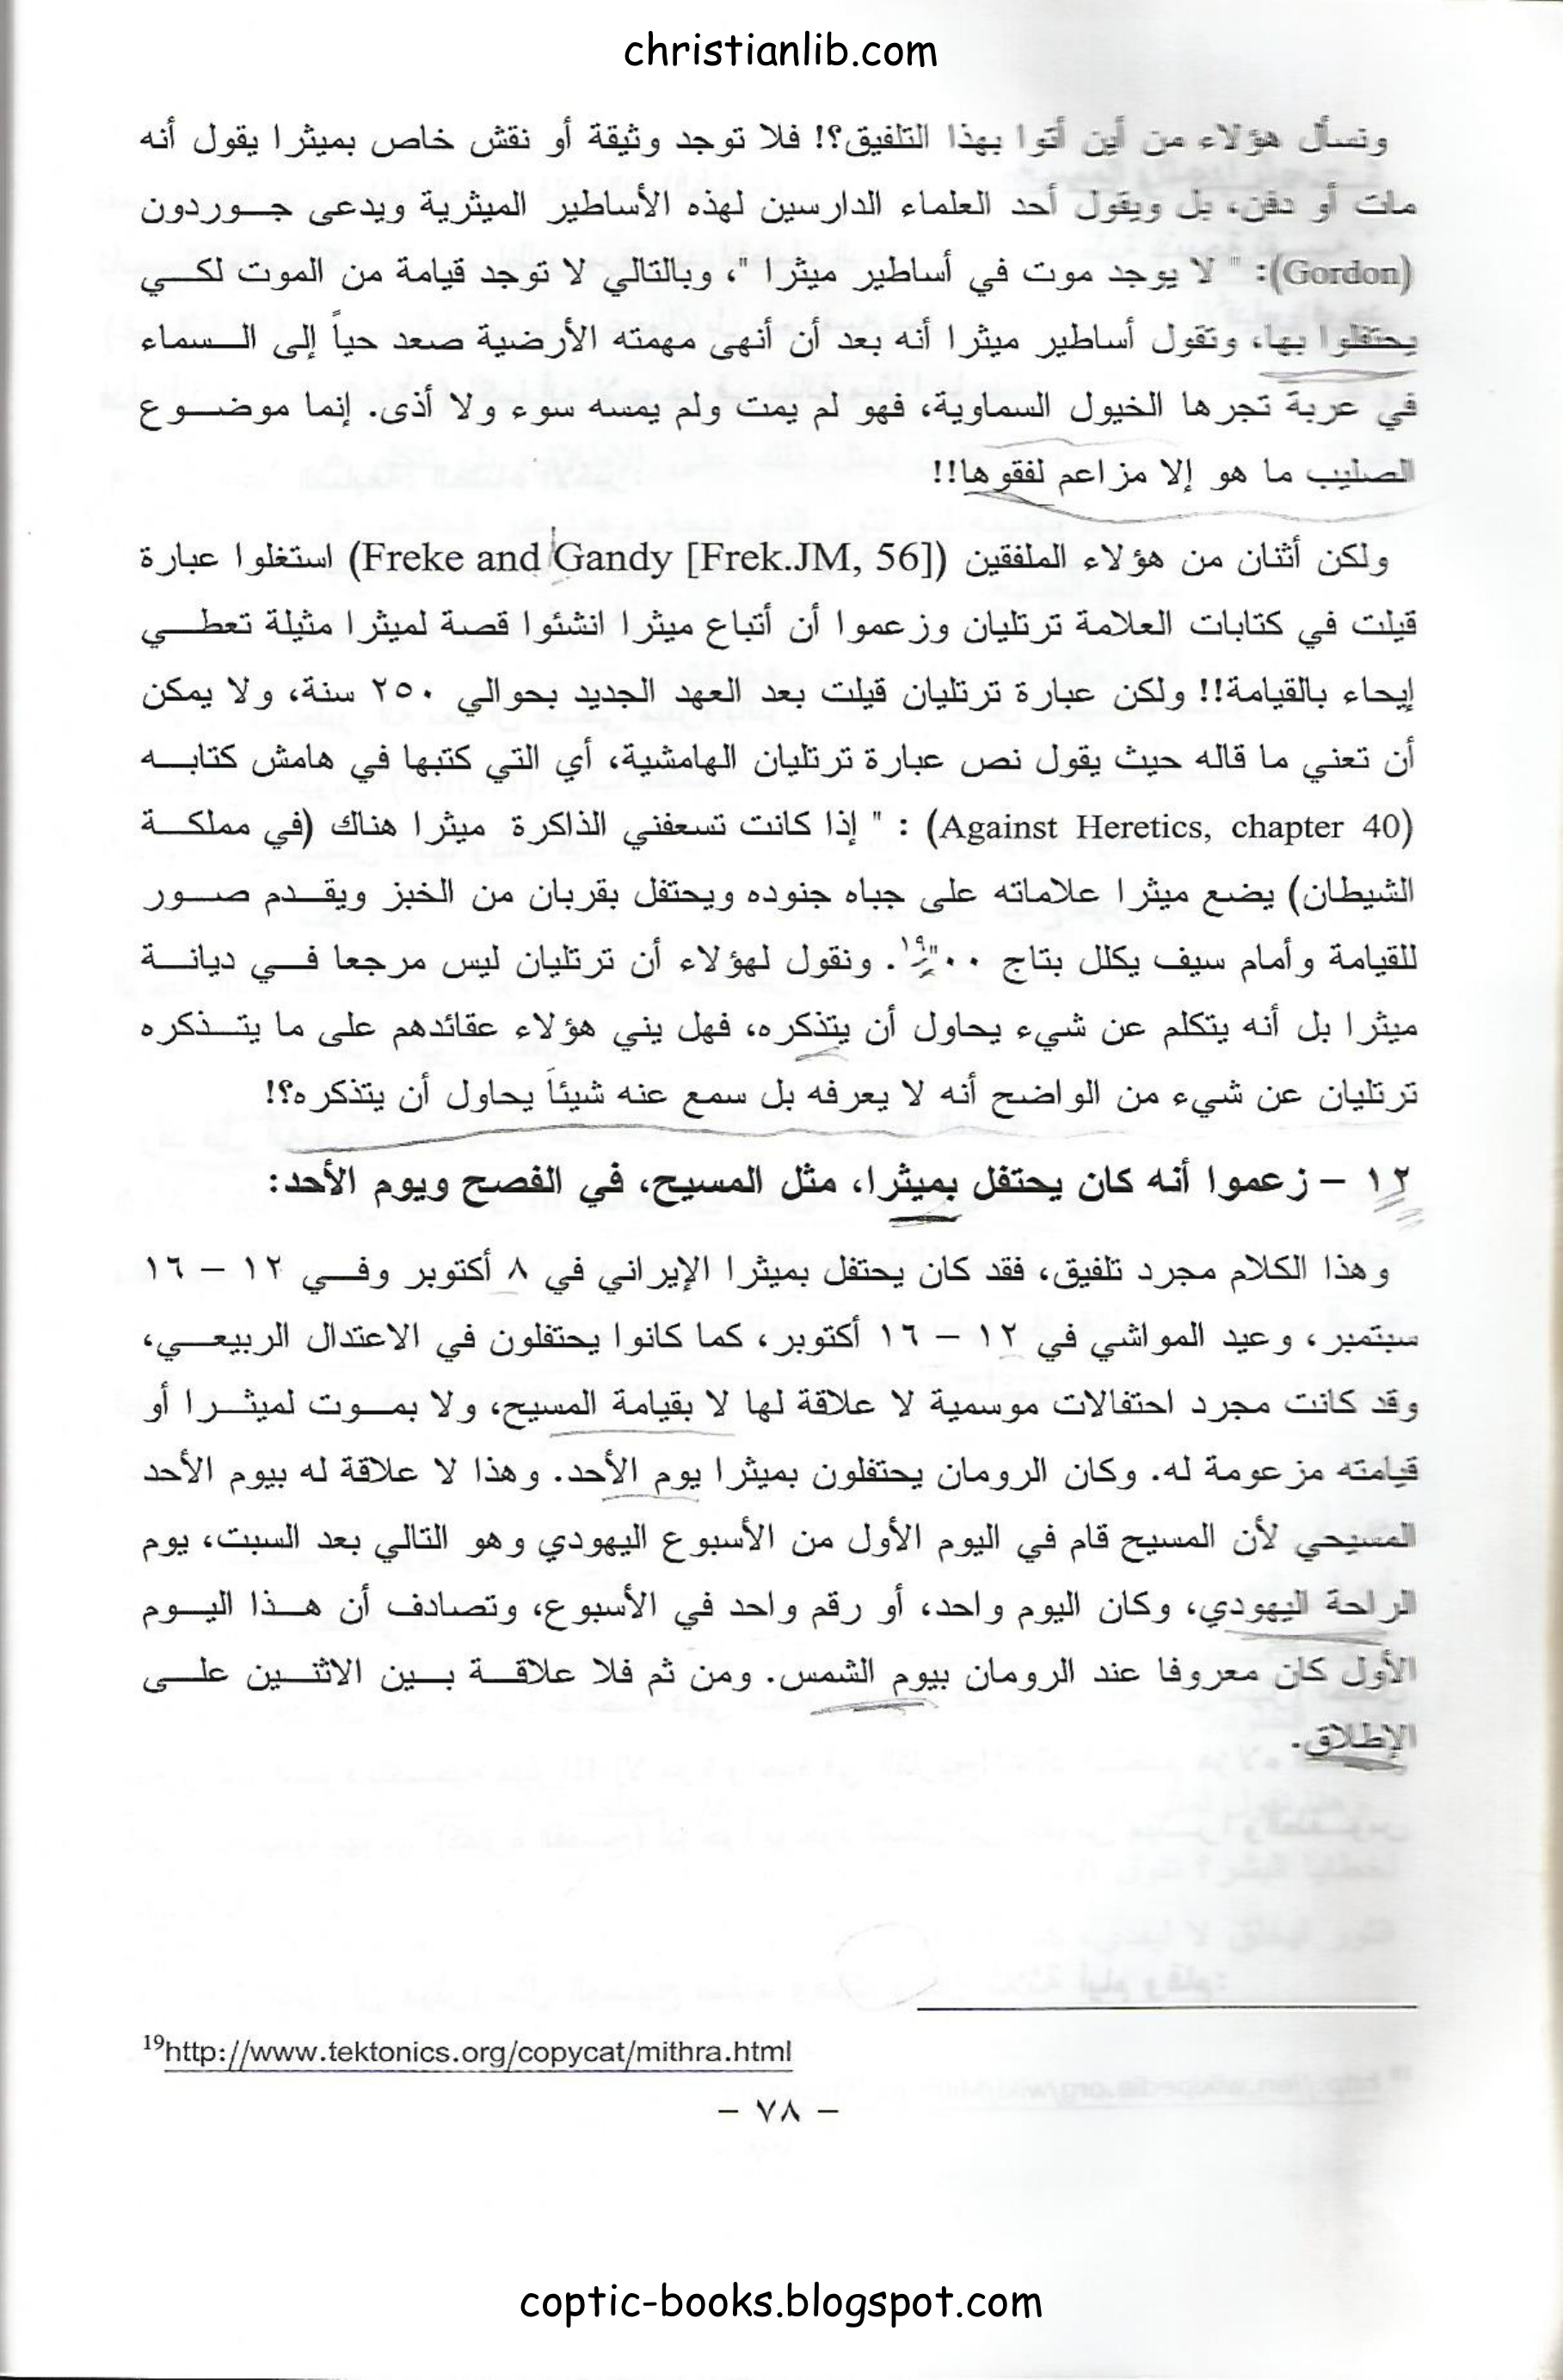 christianlib.com
ونسأل هؤلاء من أين أتوا بهذا التلفيق؟! فلا توجد وثيقة أو نقش خاص بميثرا يقول أنه
مات أو دفن، بل ويقول أحد العلماء الدارسين لهذه الأساطير الميثرية ويدعى جوردون
(Gordon): " لا يوجد موت في أساطير ميثرا "، وبالتالي لا توجد قيامة من الموت لكي
يحتفلوا بها، وتقول أساطير ميثرا أنه بعد أن أنهى مهمته الأرضية صعد حياً إلى السماء
في عربة تجرها الخيول السماوية، فهو لم يمت ولم يمسه سوء ولا أذى. إنما موضوع
الصليب ما هو إلا مزاعم لفقوها!!
ولكن أثنان من هؤلاء الملفقين (Freke and Gandy [Frek.JM, 56]) استغلوا عبارة
قيلت في كتابات العلامة ترتليان وزعموا أن أتباع ميثرا انشئوا قصة لميثرا مثيلة تعطي
إيحاء بالقيامة!! ولكن عبارة ترتليان قيلت بعد العهد الجديد بحوالي ٢٥٠ سنة، ولا يمكن
أن تعني ما قاله حيث يقول نص عبارة ترتليان الهامشية، أي التي كتبها في هامش كتابه
(Against Heretics, chapter 40) : " إذا كانت تسعفني الذاكرة ميثرا هناك (في مملكة
الشيطان) يضع ميثرا علاماته على جباه جنوده ويحتفل بقربان من الخبز ويقدم صور
للقيامة وأمام سيف يكلل بتاج ٠٠"١٩. ونقول لهؤلاء أن ترتليان ليس مرجعا في ديانة
ميثرا بل أنه يتكلم عن شيء يحاول أن يتذكره، فهل يني هؤلاء عقائدهم على ما يتذكره
ترتليان عن شيء من الواضح أنه لا يعرفه بل سمع عنه شيئاً يحاول أن يتذكره؟!
١٢ – زعموا أنه كان يحتفل بميثرا، مثل المسيح، في الفصح ويوم الأحد:
وهذا الكلام مجرد تلفيق، فقد كان يحتفل بميثرا الإيراني في ٨ أكتوبر وفي ١٢ – ١٦
سبتمبر، وعيد المواشي في ١٢ – ١٦ أكتوبر، كما كانوا يحتفلون في الاعتدال الربيعي،
وقد كانت مجرد احتفالات موسمية لا علاقة لها لا بقيامة المسيح، ولا بموت لميثرا أو
قيامته مزعومة له. وكان الرومان يحتفلون بميثرا يوم الأحد. وهذا لا علاقة له بيوم الأحد
المسيحي لأن المسيح قام في اليوم الأول من الأسبوع اليهودي وهو التالي بعد السبت، يوم
الراحة اليهودي، وكان اليوم واحد، أو رقم واحد في الأسبوع، وتصادف أن هذا اليوم
الأول كان معروفا عند الرومان بيوم الشمس. ومن ثم فلا علاقة بين الاثنين على
الإطلاق.
19http://www.tektonics.org/copycat/mithra.html
– ٧٨ –
coptic-books.blogspot.com